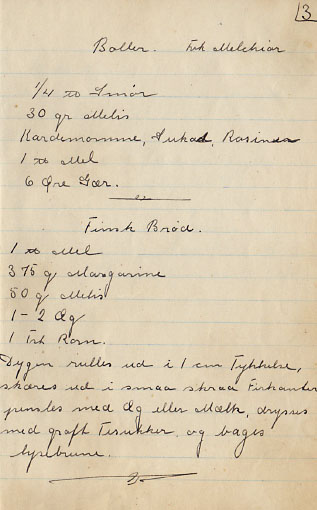 3
Boller. Frk Melchior
1/4 ℔ Smør
30 gr Melis
Kardemomme, Sukad, Rosiner
1 ℔ Mel
6 Øre Gær.
Finsk Brød.
1 ℔ Mel
375 g Margarine
50 g Melis
1-2 Æg
1 Rom.
Dejgen rulles ud i 1 cm Tykkelse,
skæres ud i smaa skraa Firkanter
pensles med Æg eller Mælk, drysses
med groft Tesukker, og bages
lysebrune.